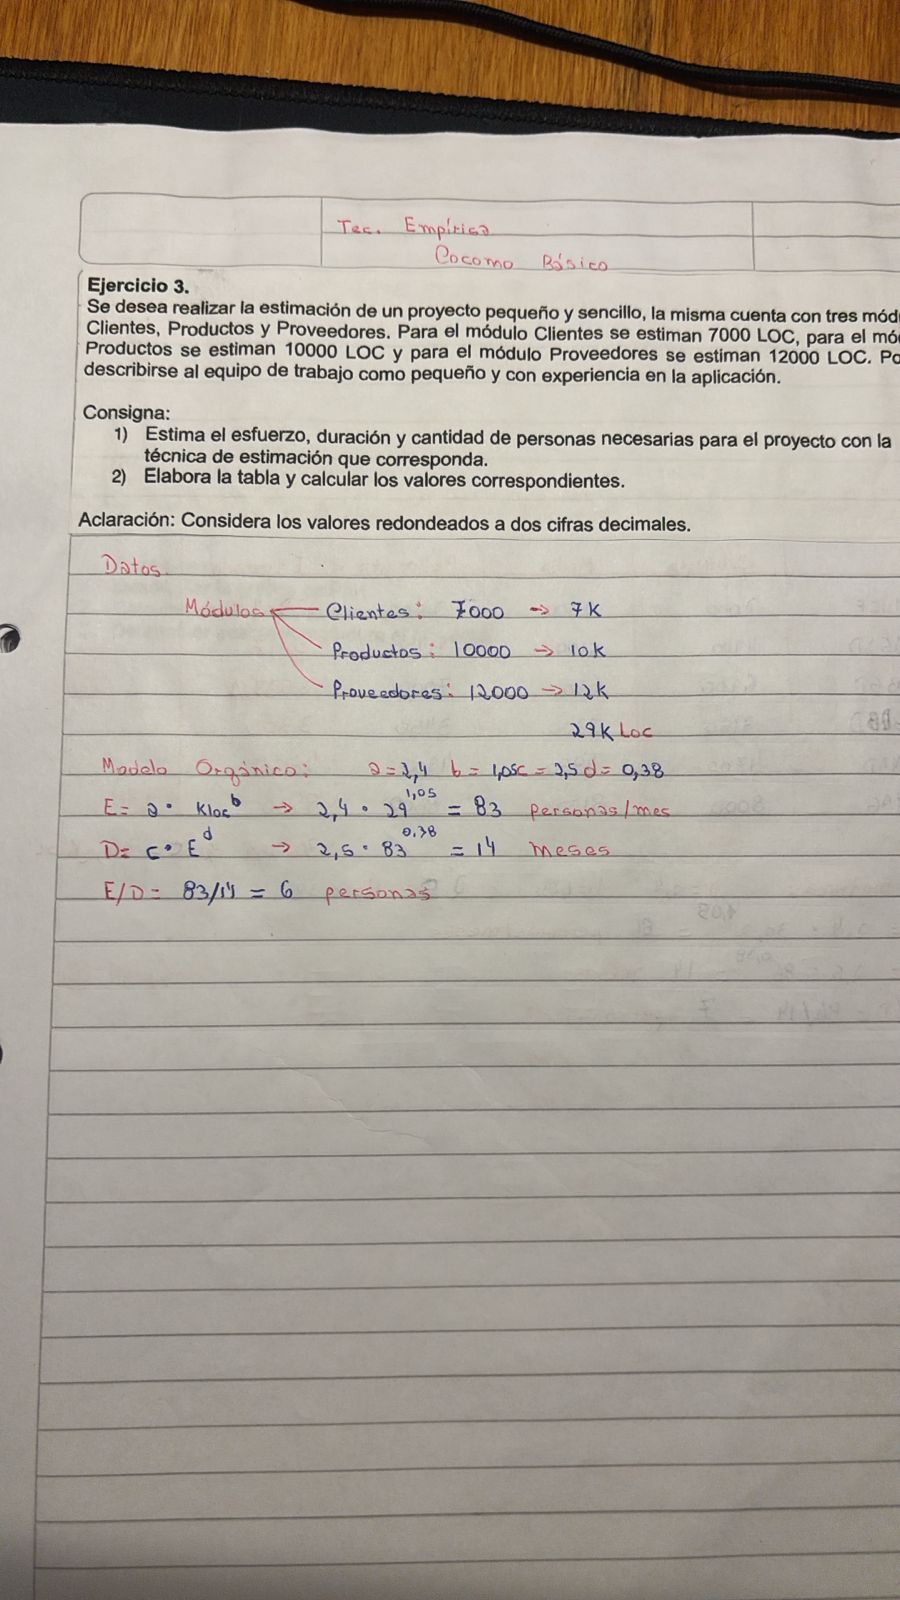 Tec. Empírica
Cocomo Básico
Ejercicio 3.
Se desea realizar la estimación de un proyecto pequeño y sencillo, la misma cuenta con tres mód
Clientes, Productos y Proveedores. Para el módulo Clientes se estiman 7000 LOC, para el mó
Productos se estiman 10000 LOC y para el módulo Proveedores se estiman 12000 LOC. Po
describirse al equipo de trabajo como pequeño y con experiencia en la aplicación.
Consigna:
1) Estima el esfuerzo, duración y cantidad de personas necesarias para el proyecto con la
técnica de estimación que corresponda.
2) Elabora la tabla y calcular los valores correspondientes.
Aclaración: Considera los valores redondeados a dos cifras decimales.
Datos
Módulos Clientes: 7000 → 7K
Productos: 10000 → 10K
Proveedores: 12000 → 12K
29K Loc
Modelo Orgánico: a=2,4 b=1,05 c=2,5 d=0,38
E= a · Kloc^b → 2,4 · 29^1,05 = 83 personas/mes
D= c · E^d → 2,5 · 83^0,38 = 14 meses
E/D= 83/14 = 6 personas